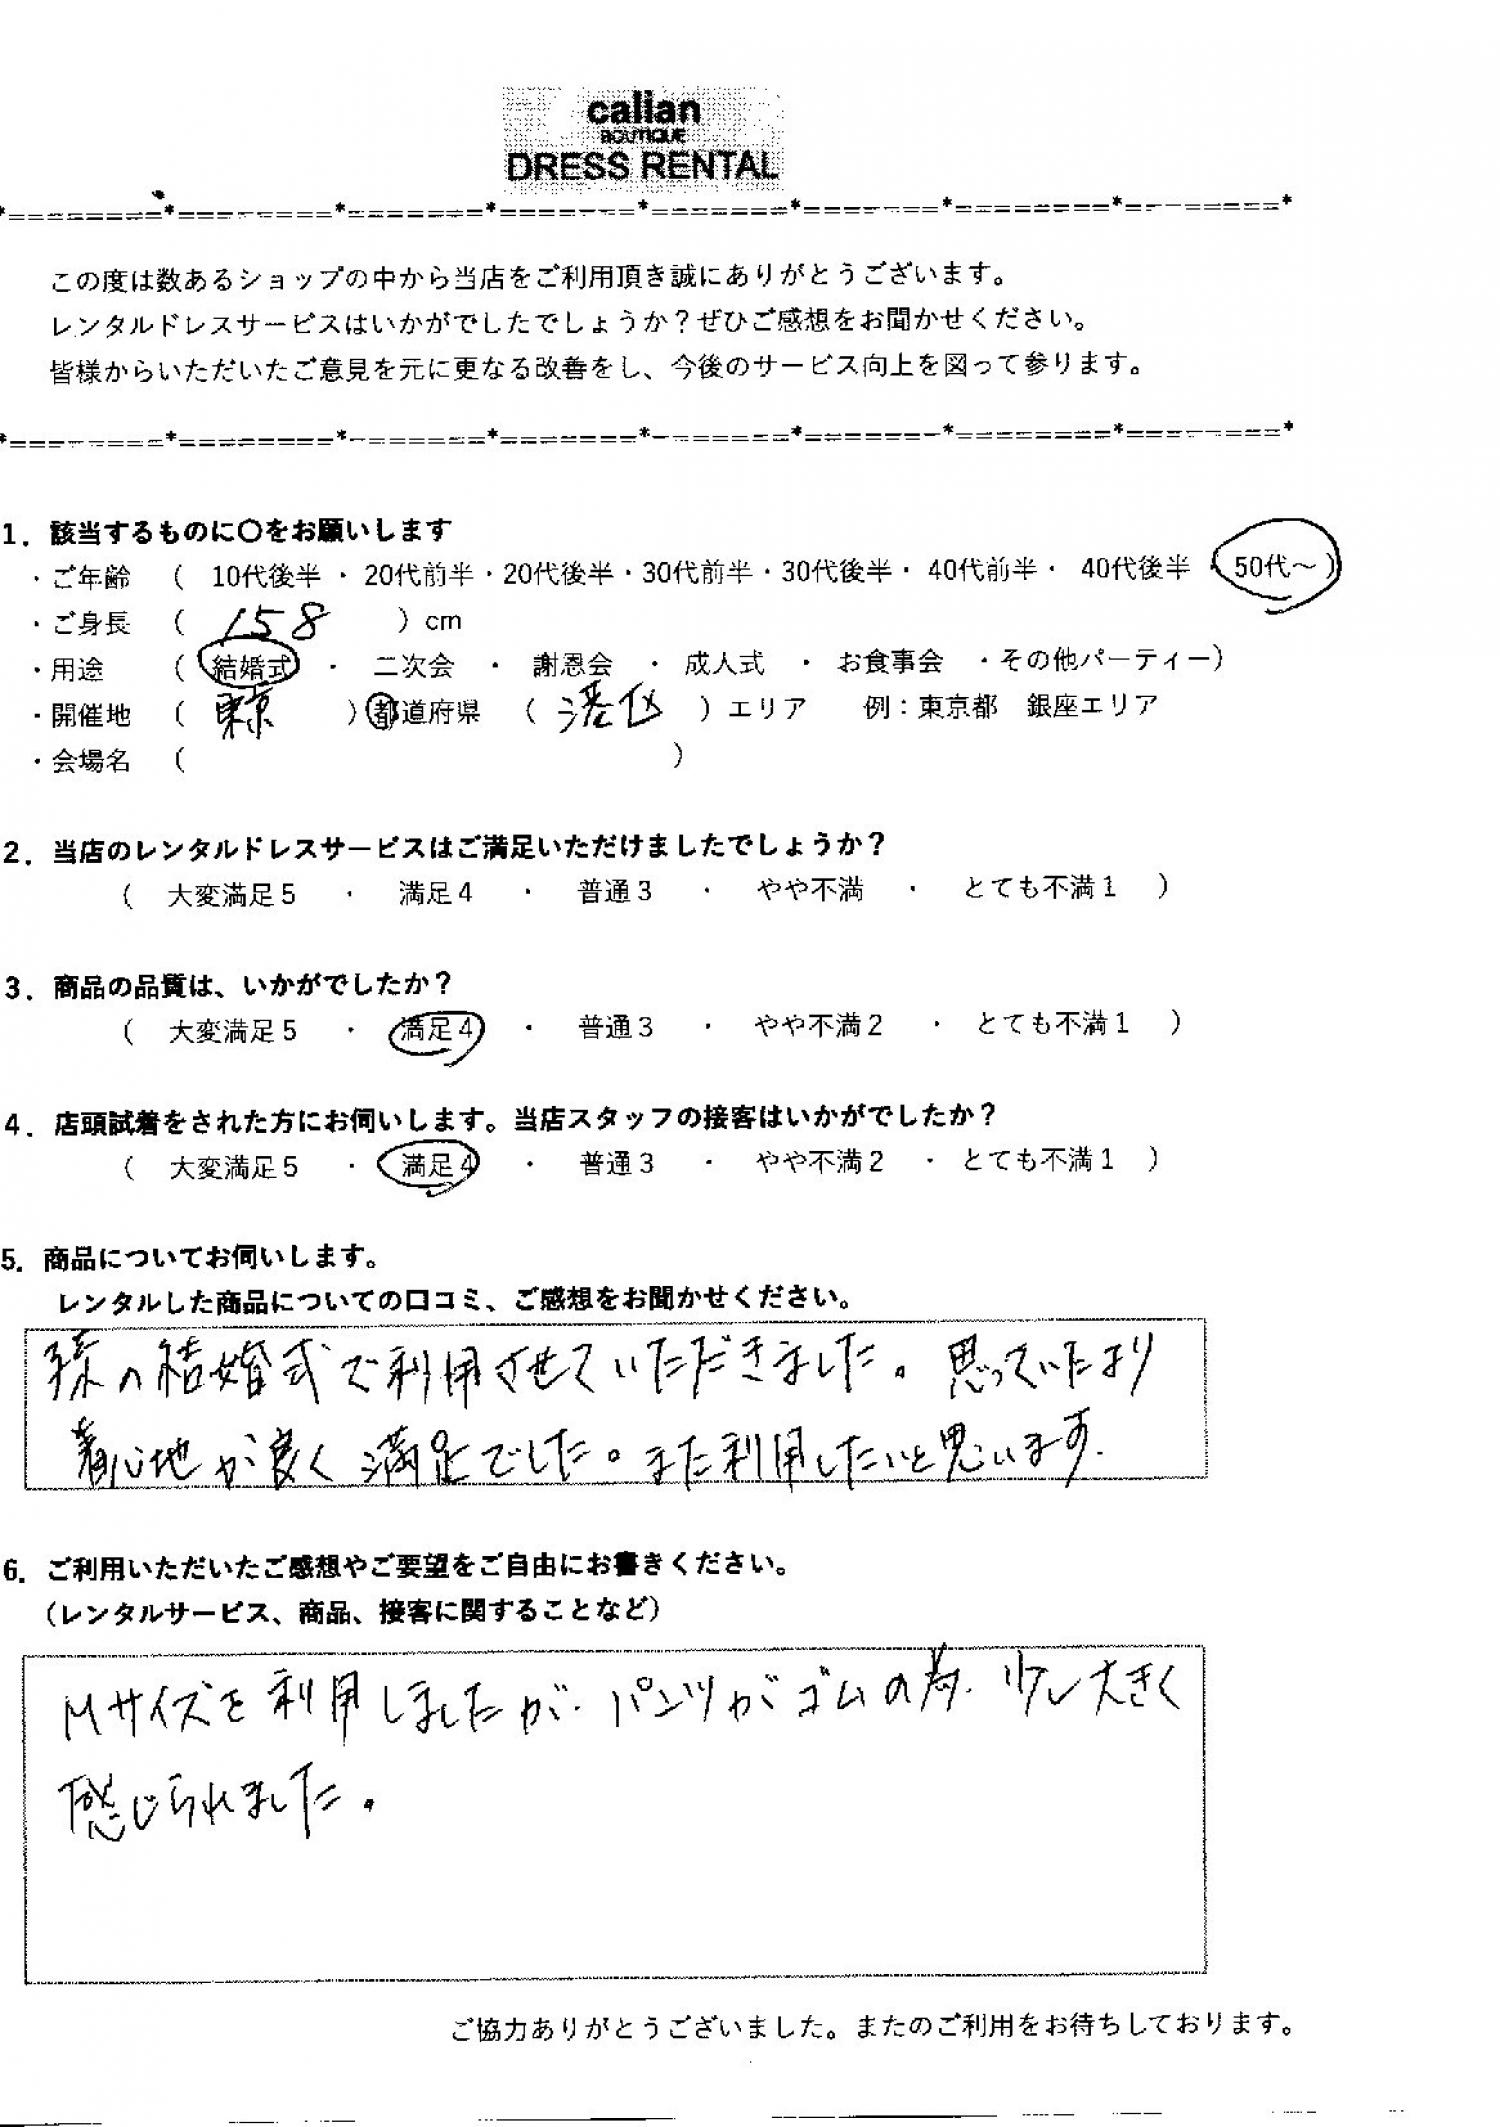 calian
BOUTIQUE
DRESS RENTAL
*=========*=========*========*========*========*========*=========*=========*
この度は数あるショップの中から当店をご利用頂き誠にありがとうございます。
レンタルドレスサービスはいかがでしたでしょうか？ぜひご感想をお聞かせください。
皆様からいただいたご意見を元に更なる改善をし、今後のサービス向上を図って参ります。
*=========*=========*========*========*========*========*=========*=========*
1．該当するものに〇をお願いします
・ご年齢 （ 10代後半 ・ 20代前半・20代後半・30代前半・30代後半・ 40代前半・ 40代後半 ・ 50代～ ）
・ご身長 （ 158 ）cm
・用途 （ 結婚式 ・ 二次会 ・ 謝恩会 ・ 成人式 ・ お食事会 ・その他パーティー）
・開催地 （ 東京 ）都道府県 （ 港区 ）エリア 例：東京都 銀座エリア
・会場名 （ ）
2．当店のレンタルドレスサービスはご満足いただけましたでしょうか？
（ 大変満足５ ・ 満足４ ・ 普通３ ・ やや不満 ・ とても不満１ ）
3．商品の品質は、いかがでしたか？
（ 大変満足５ ・ 満足４ ・ 普通３ ・ やや不満２ ・ とても不満１ ）
4．店頭試着をされた方にお伺いします。当店スタッフの接客はいかがでしたか？
（ 大変満足５ ・ 満足４ ・ 普通３ ・ やや不満２ ・ とても不満１ ）
5．商品についてお伺いします。
レンタルした商品についての口コミ、ご感想をお聞かせください。
孫の結婚式で利用させていただきました。思っていたより
着心地が良く満足でした。また利用したいと思います.
6．ご利用いただいたご感想やご要望をご自由にお書きください。
（レンタルサービス、商品、接客に関することなど）
Mサイズを利用しましたが. パンツがゴムの為. 少し大きく
感じられました。
ご協力ありがとうございました。またのご利用をお待ちしております。